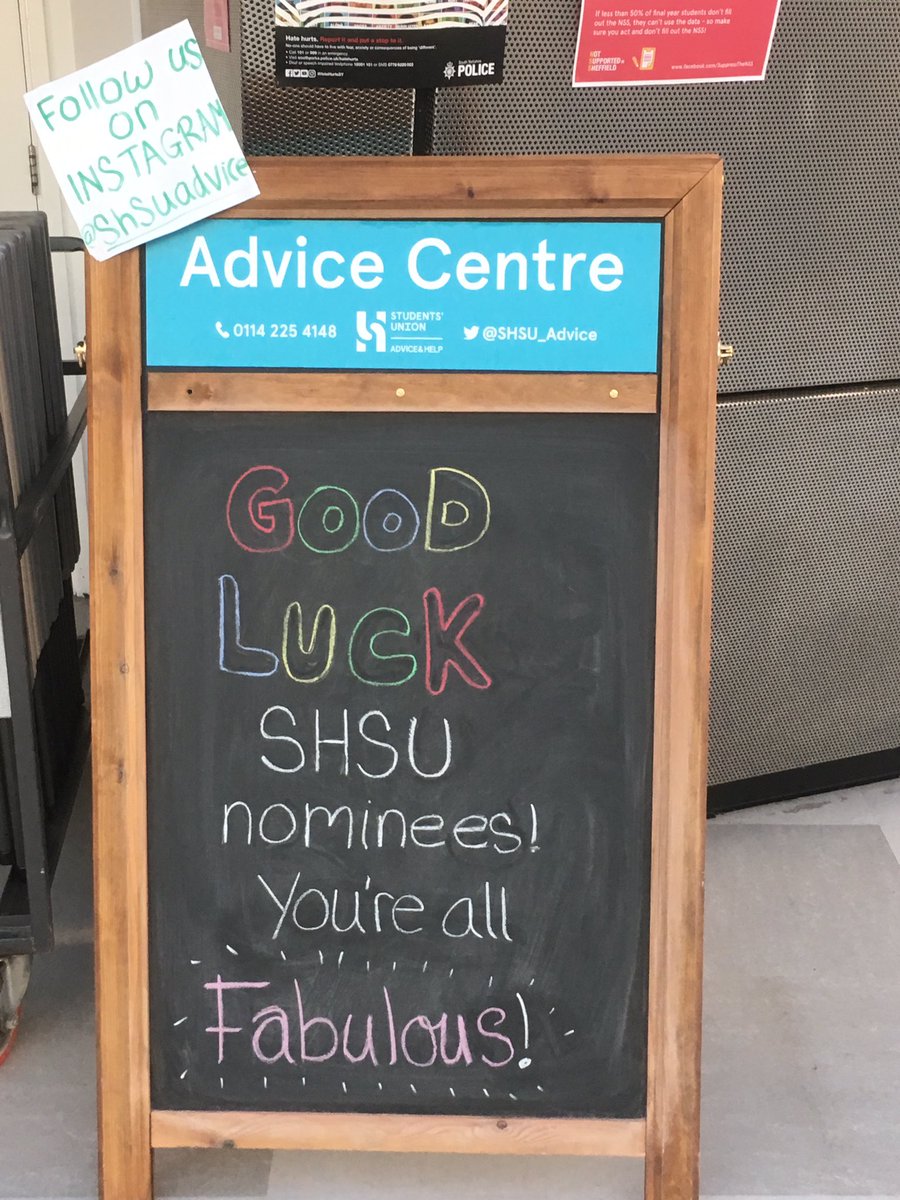 Hate hurts. Report it and put a stop to it.
No-one should have to live with fear, anxiety or consequences of being 'different'.
• Call 101 or 999 in an emergency
South Yorkshire
POLICE
If less than 50% of final year students don't fill
out the NSS, they can't use the data - so make
sure you act and don't fill out the NSS!
NOT
SUPPORTED IN
SHEFFIELD
www.facebook.com/SuppressTheNSS
Follow us
on
INSTAGRAM
@ShSuadvice
Advice Centre
0114 225 4148
STUDENTS'
UNION
ADVICE & HELP
@SHSU_Advice
GOOD
LUCK
SHSU
nominees!
You're all
Fabulous!